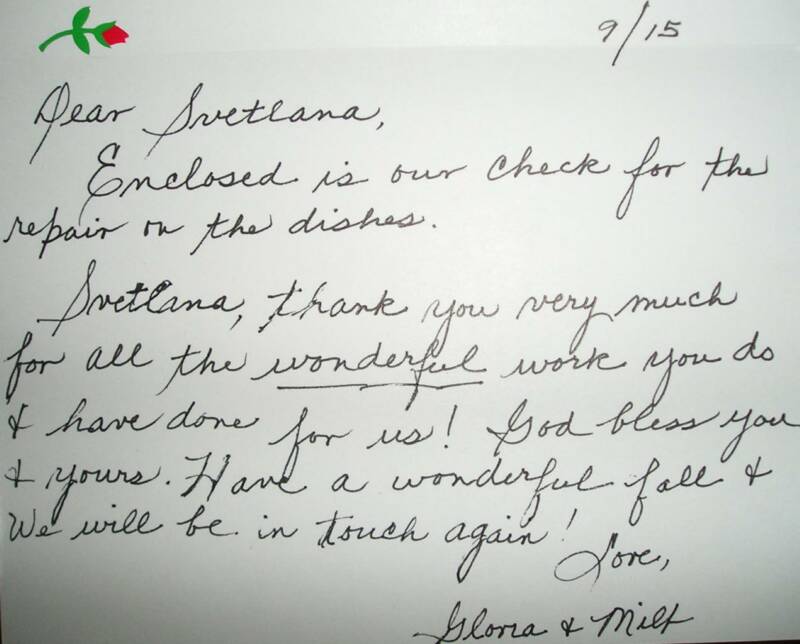 9/15
Dear Svetlana,
Enclosed is our check for the
repair on the dishes.
Svetlana, thank you very much
for all the wonderful work you do
& have done for us! God bless you
& yours. Have a wonderful fall &
We will be in touch again!
Love,
Gloria & Milt